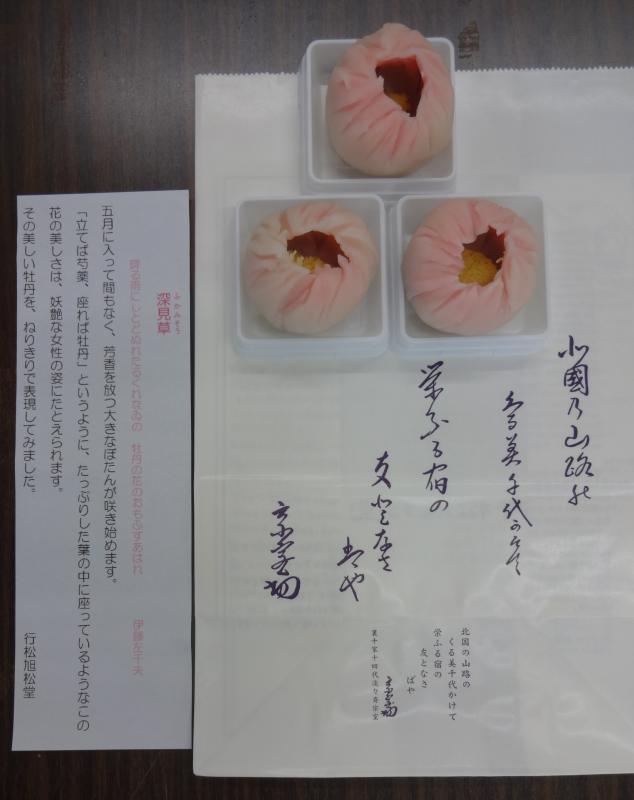 深見草
ふかみそう
降る雨にしとどぬれたるくれなゐの 牡丹の花のおもふすあはれ
伊藤左千夫
五月に入って間もなく、芳香を放つ大きなぼたんが咲き始めます。
「立てば芍薬、座れば牡丹」というように、たっぷりした葉の中に座っているようなこの
花の美しさは、妖艶な女性の姿にたとえられます。
その美しい牡丹を、ねりきりで表現してみました。
行松旭松堂
北國乃山路能
久る美千代可希て
栄ふる宿の
友となさ
者や
北国の山路の
くる美千代かけて
栄ふる宿の
友となさ
ばや
裏千家十四代淡々斎宗室